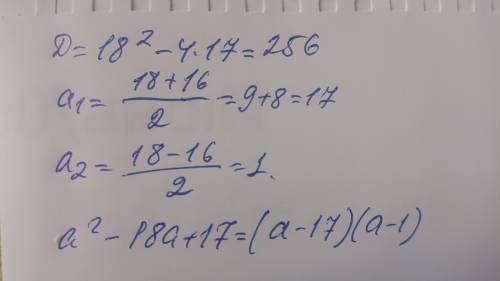 D = 18² - 4·17 = 256
a₁ = (18+16)/2 = 9+8 = 17
a₂ = (18-16)/2 = 1.
a² - 18a + 17 = (a-17)(a-1)